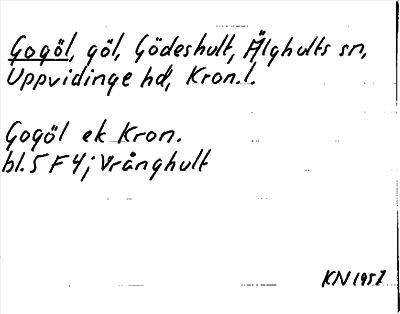 Gogöl, göl, Gödeshult, Älghults sn,
Uppvidinge hd, Kron. l.
Gogöl ek Kron.
bl. 5 F 4; Vrånghult
KN 1957